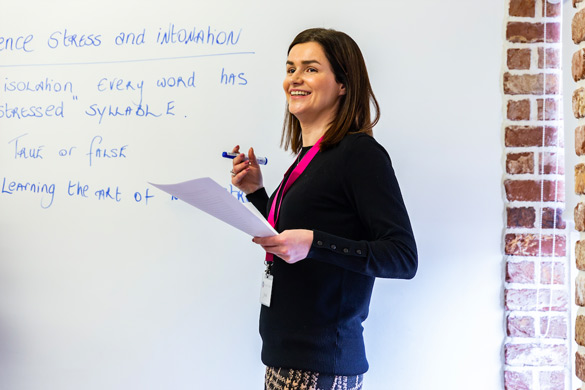 ence Stress and intonation
isolation every word has
stressed" syllable.
True or false
Learning the art of